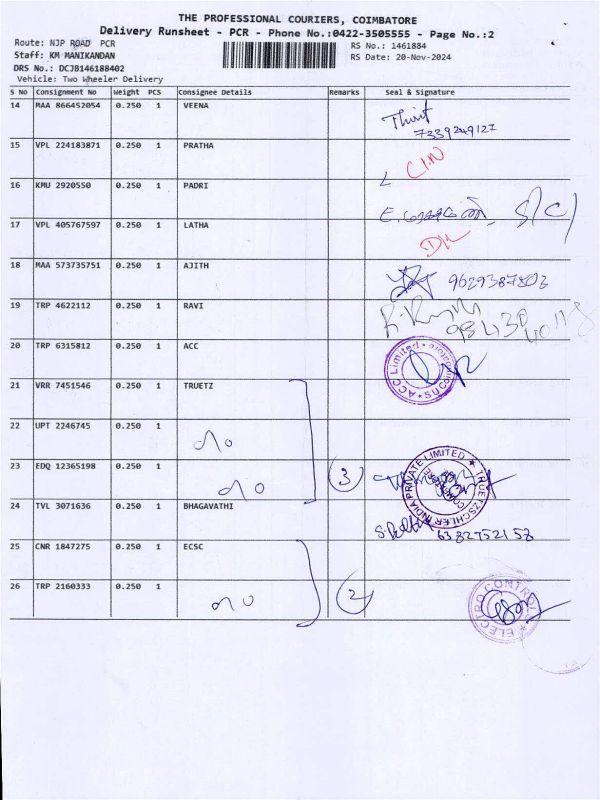 THE PROFESSIONAL COURIERS, COIMBATORE
Delivery Runsheet - PCR - Phone No.:0422-3505555 - Page No.:2
Route: NJP ROAD PCR
RS No.: 1461884
Staff: KM MANIKANDAN
RS Date: 20-Nov-2024
DRS No.: DCJB146188402
Vehicle: Two Wheeler Delivery
S No Consignment No Weight PCS Consignee Details Remarks Seal & Signature
14 MAA 866452054 0.250 1 VEENA
7339249127
15 VPL 224183871 0.250 1 PRATHA
16 KMU 2920550 0.250 1 PADRI
S/C
17 VPL 405767597 0.250 1 LATHA
18 MAA 573735751 0.250 1 AJITH
9629387803
19 TRP 4622112 0.250 1 RAVI
98430 40118
20 TRP 6315812 0.250 1 ACC
ACC Limited
21 VRR 7451546 0.250 1 TRUETZ
22 UPT 2246745 0.250 1
23 EDQ 12365198 0.250 1
3
TRUETZSCHLER INDIA PRIVATE LIMITED
24 TVL 3071636 0.250 1 BHAGAVATHI
6382752158
25 CNR 1847275 0.250 1 ECSC
26 TRP 2160333 0.250 1
2
ELECTRO CONTROLS